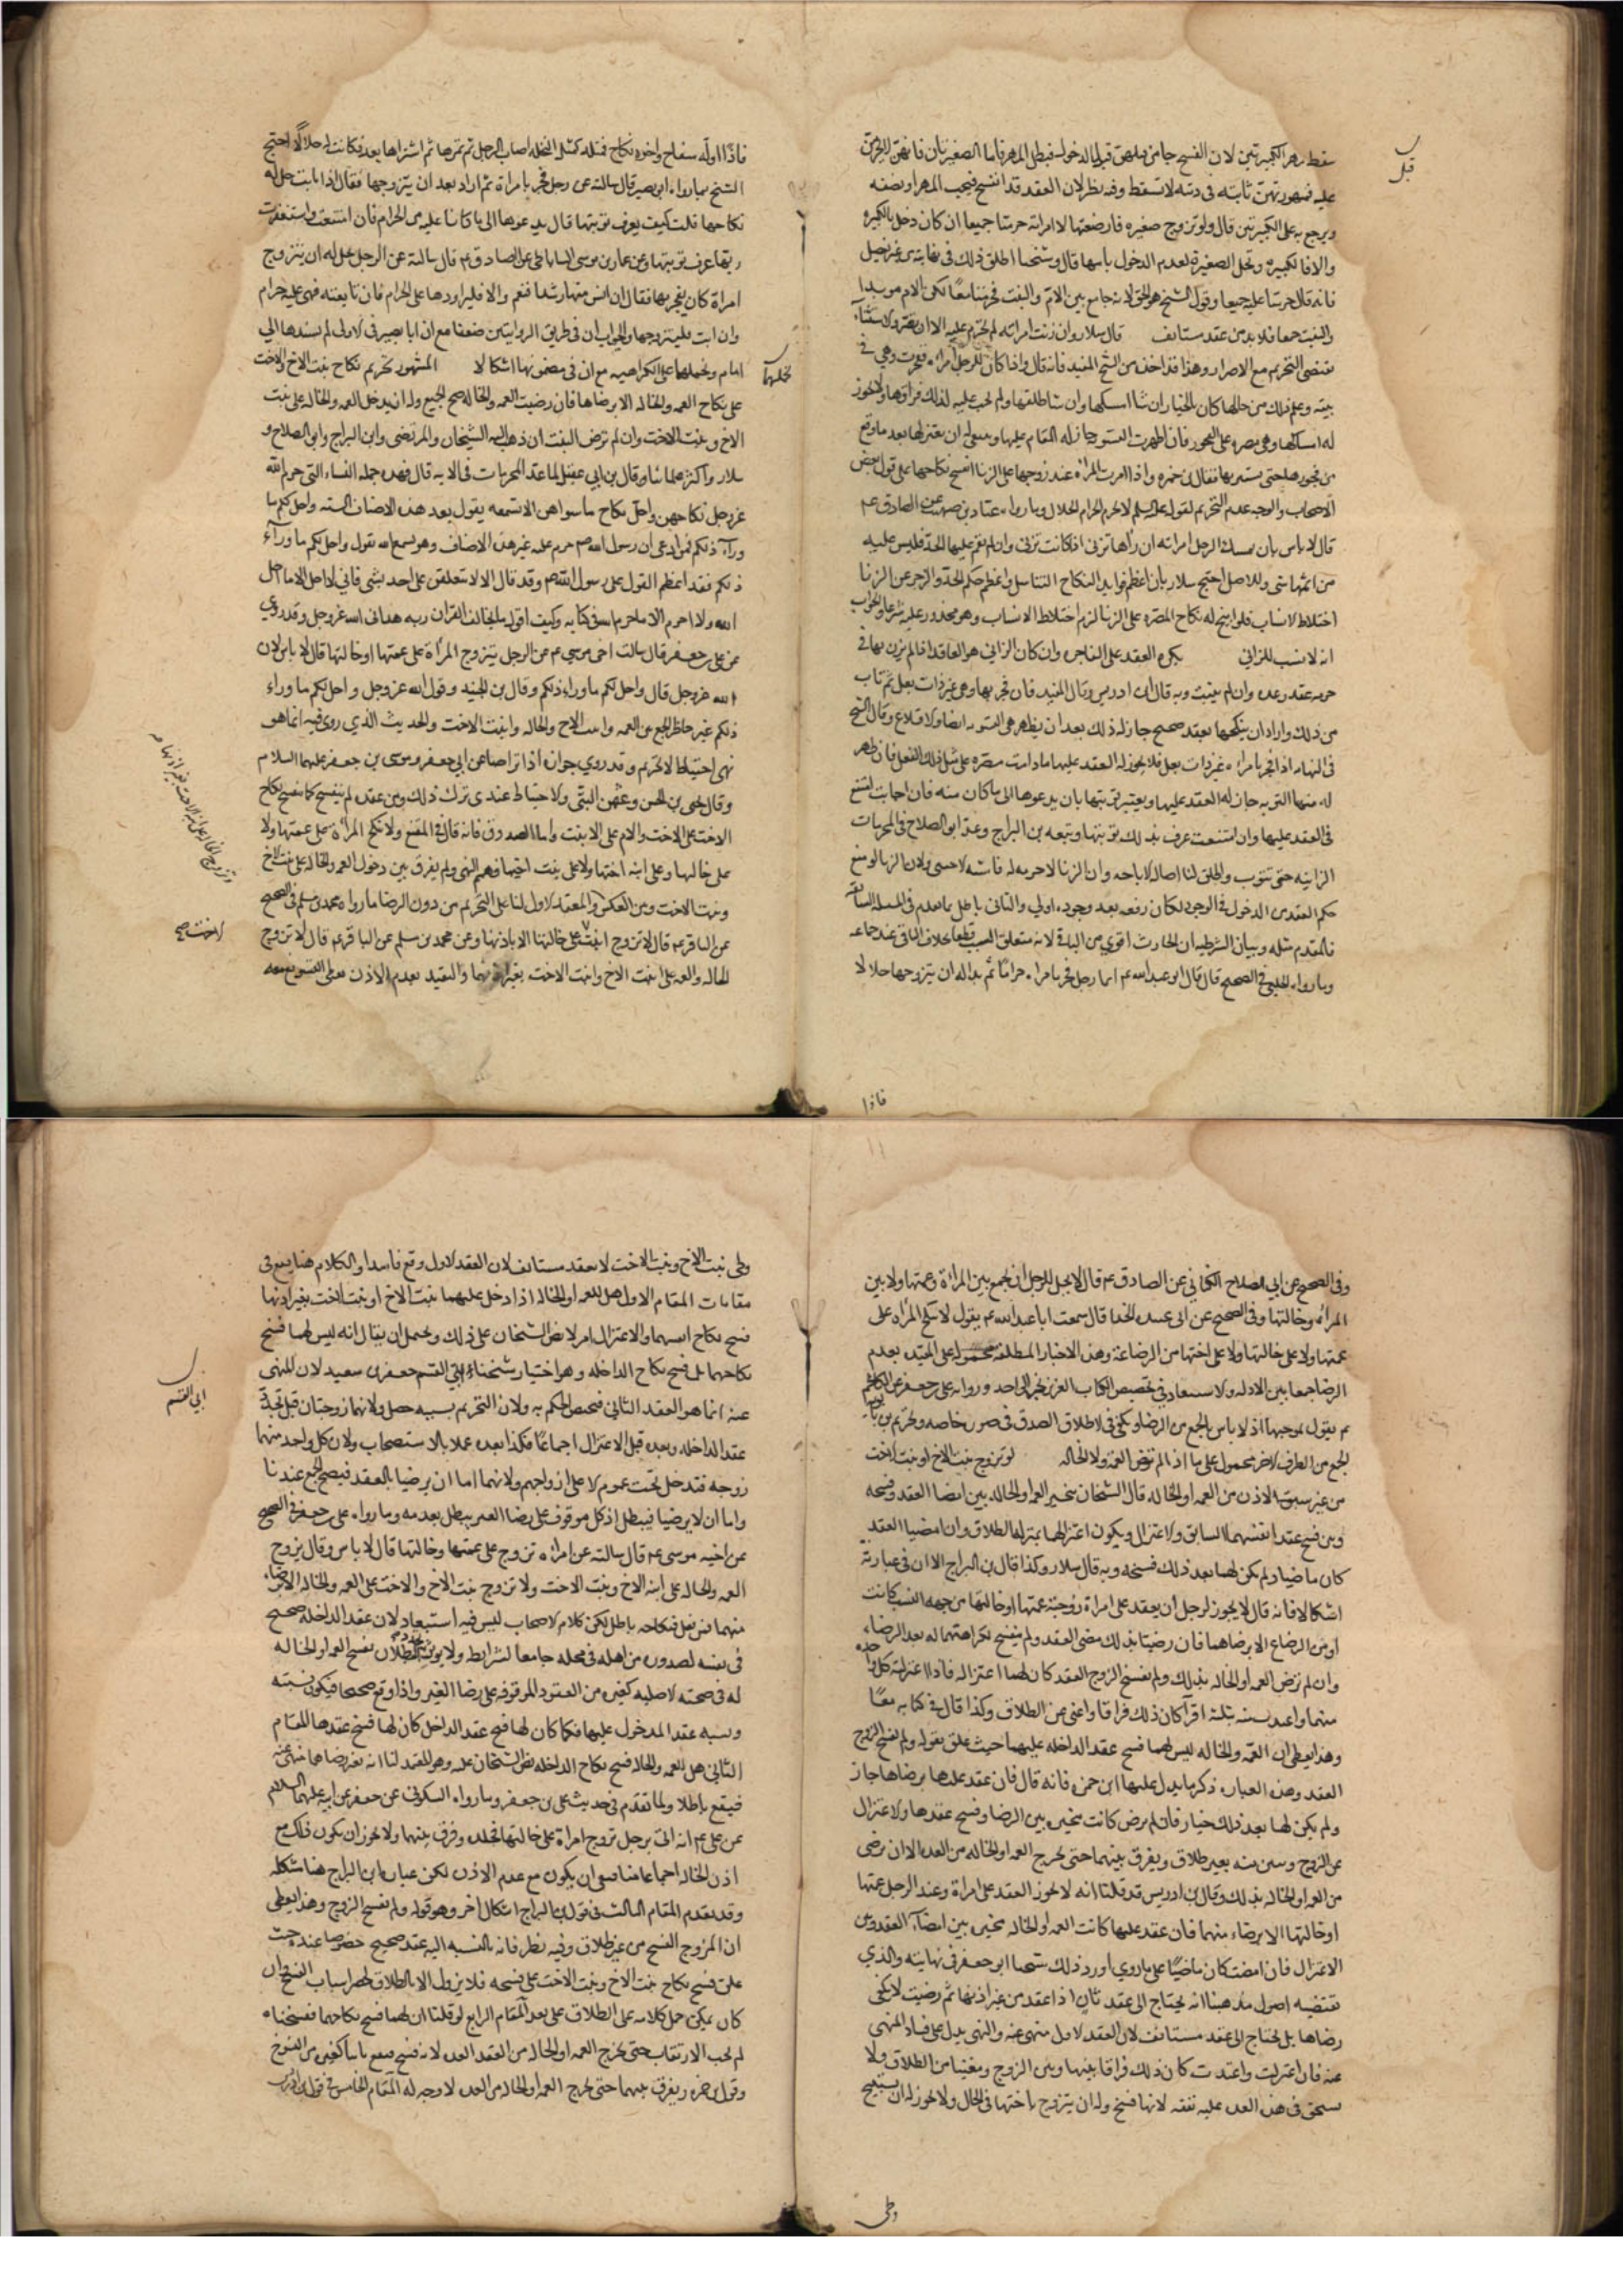 سقط مهر الكبيرتين لان الفسخ جا من قبلهن قبل الدخول فبطل المهر فاما الصغيرتان فانهن اللاتي
عليه فمهورهن ثابته فى ذمته لا تسقط وفيه نظر لان العقد قد انفسخ فيجب المهر او نصفه
ويرجع به على الكبيرتين قال ولو تزوج صغيره فارضعتها الامراته حرمتا جميعا ان كان دخل بالكبيره
والا فالكبيره وتحل الصغيرة لعدم الدخول بامها قال وشيخنا اطلق ذلك فى نهايته من غير تفصيل
فانه قال حرمتا عليه جميعا وقول الشيخ هو الحق لانه جامع بين الام والبنت فحرمتا معا لكن الام موبدا
والبنت جمعا فلا بد من عقد مستانف قال سلار وان زنت امراته لم تحرم عليه الا ان تصر والاستثناء
يقتضى التحريم مع الاصرار وهذا قد اخذه من الشيخ المفيد فانه قال واذا كان للرجل امراه ففجرت وهي في
بيته وعلم ذلك من حالها كان بالخيار ان شا امسكها وان شا طلقها ولم يجب عليه لذلك فراقها ولا يجوز
له امساكها وهى مصره على الفجور فان اظهرت التوبه جاز له المقام عليها وينبغى ان يعتزلها بعد ما وقع
من فجورها حتى يستبريها وقال ابن حمزه واذا اصرت المراه عند زوجها على الزنا انفسخ نكاحها على قول بعض
الاصحاب والوجه عدم التحريم لقوله عليه السلم لا يحرم الحرام الحلال وما رواه عباد بن صهيب عن الصادق عم
قال لا باس بان يمسك الرجل امراته ان راها تزنى اذا كانت تزنى وان لم يقم عليها الحد فليس عليه
من اثمها شى وللاصل احتج سلار بان اعظم فوايد النكاح التناسل واعظم حكم الحد والزجر عن الزنا
اختلاط الانساب فلو ابيح له نكاح المصره على الزنا لزم اختلاط الانساب وهو محذور عليه شرعا والجواب
انه لا نسب للزانى يكره العقد على الفاجره وان كان الزانى هو العاقد اذا لم يزن بها فى
حرمه عقد وعده وان لم يتب وبه قال ابن ادريس وقال المفيد فان فجر بها وهى غير ذات بعل ثم تاب
من ذلك واراد ان ينكحها بعقد صحيح جاز له ذلك بعد ان يظهر هى التوبه ايضا والاقلاع وقال الشيخ
فى النهايه اذا فجر بامراه غير ذات بعل فلا يجوز له العقد عليها ما دامت مصره على مثل ذلك الفعل فان ظهر
له منها التوبه جاز له العقد عليها ويعتبر توبتها بان يدعوها الى ما كان منه فان اجابت امتنع
فى العقد عليها وان امتنعت عرف بذلك توبتها وتبعه بن البراج وعد ابو الصلاح فى المحرمات
الزانيه حتى تتوب واطلق لنا اصاله الاباحه وان الزنا لا حرمه له
حكم العقد من الدخول فى الوجود لكان رفعه بعد وجوده اولى والتالى باطل بما تقدم فى المسله السابقه
فالمقدم مثله وبيان الشرطيه ان الحادث اقوى من الباقى لانه متعلق السبب قطعا بخلاف الباقى عند جماعه
وما رواه الحلبى فى الصحيح قال قال ابو عبد الله عم ايما رجل فجر بامراه حراما ثم بدا له ان يتزوجها حلالا
قبل
فاذا
فاذا اوله سفاح واخره نكاح فمثله كمثل النخله اصاب الرجل ثم تمرها ثم اشتراها بعد فكانت له حلالا احتج
الشيخ بما رواه ابو بصير قال سالته عن رجل فجر بامراة ثم اراد بعد ان يتزوجها فقال اذا تابت حل له
نكاحها قلت كيف يعرف توبتها قال يدعوها الى ما كانا عليه من الحرام فان امتنعت واستغفرت
ربها عرف توبتها وعن عمار بن موسى الساباطى عن الصادق عم قال سالته عن الرجل يحل له ان يتزوج
امراة كان يفجر بها فقال ان انس منها رشدا فنعم والا فليراودها على الحرام فان تابعته فهى عليه حرام
وان ابت فليتزوجها والجواب ان فى طريق الروايتين ضعفا مع ان ابا بصير فى الاولى لم يسندها الى
امام ونحملها على الكراهيه مع ان فى مضمونها اشكالا المشهور تحريم نكاح بنت الاخ والاخت
على نكاح العمه والخاله الا برضاها فان رضيت العمه والخاله صح الجميع وله ان يدخل العمه والخاله على بنت
الاخ وبنت الاخت وان لم ترض البنت ان ذهب اليه الشيخان والمرتضى وابن البراج وابو الصلاح و
سلار واكثر علمائنا وقال بن ابى عقيل لما عد المحرمات فى الايه قال فهذه جمله النساء التى حرم الله
عز وجل نكاحهن واحل نكاح ما سواهن الا تسمعه يقول بعد هذه الاصناف السته واحل لكم ما
وراء ذلكم فمن ادعى ان رسول الله صم حرم عليه غير هذه الاصناف وهو يسمع الله يقول واحل لكم ما وراء
ذلكم فقد اعظم القول على رسول الله صم وقد قال الا لا يتعلقن على احد بشى فانى لا احل الا ما احل
الله ولا احرم الا ما حرم الله فى كتابه وكيف اقول ما يخالف القران وبه هدانى الله عز وجل وقد روى
عن على بن جعفر قال سالت اخى موسى عم عن الرجل يتزوج المراة على عمتها او خالتها قال لا باس لان
الله عز وجل قال واحل لكم ما وراء ذلكم وقال بن الجنيد وقول الله عز وجل واحل لكم ما وراء
ذلكم غير حاظر الجمع بين العمه وابنت الاخ والخاله وابنت الاخت والحديث الذي روى فيه انما هو
نهى احتياط لا تحريم وقد روي جوازه اذا تراضيا عن ابى جعفر وموسى بن جعفر عليهما السلام
وقال يحيى بن الحسن وعثمن البتى والاحتياط عندى ترك ذلك ومن عقده لم ينفسخ كما ينفسخ نكاح
الاخت على الاخت والام على الابنت واما الصدوق فانه قال فى المقنع ولا تنكح المراة على عمتها ولا
على خالتها وعلى ابنه اختها ولا على بنت اخيها وهم النهى ولم يفرق بين دخول العمه والخاله على بنت الاخ
وبنت الاخت وبين العكس والمعتمد الاول لنا على التحريم من دون الرضا ما رواه محمد بن مسلم فى الصحيح
عن الباقر عم قال لا تزوج ابنت على خالتها الا باذنها وعن محمد بن مسلم عن الباقر عم قال لا تزوج
الخاله والعمه على ابنت الاخ وابنت الاخت بغير اذنهما والتقييد بعدم الاذن
نحملها
الاخت صح
وفى الصحيح عن ابى الصلاح الكنانى عن الصادق عم قال لا يحل للرجل ان يجمع بين المراة وعمتها ولا بين
المراه وخالتها وفى الصحيح عن ابى عبيده الحذا قال سمعت ابا عبد الله عم يقول لا تنكح المراه على
عمتها ولا على خالتها ولا على اختها من الرضاعة وهذه الاخبار المطلقه محموله على المقيد بعدم
الرضا جمعا بين الادله ولا استبعاد فى تخصيص الكتاب العزيز بخبر الواحد وروايه على بن جعفر عن الكاظم
عم نقول بموجبها اذ لا باس بالجمع مع الرضا ويكفى فى الاطلاق الصدق فى صوره خاصه وتحريم
الجمع من الطرف الاخر محمول على ما اذا لم ترض العمه ولا الخاله لو تزوج بنت الاخ او بنت الاخت
من غير سبق الاذن من العمه او الخاله قال الشيخان تتخير العمه او الخاله بين امضا العقد وفسخه
وبين فسخ عقد انفسهما السابق والاعتزال ويكون اعتزالها بمنزله الطلاق وان امضيا العقد
كان ماضيا ولم يكن لهما بعد ذلك فسخه وبه قال سلار وكذا قال بن البراج الا ان فى عبارته
اشكالا فانه قال لا يجوز لرجل ان يعقد على امراة زوجته عمتها او خالتها من جهه النسب كانت
او من الرضاع الا برضاهما فان رضيتا بذلك مضى العقد ولم ينفسخ بكراهتهما له بعد الرضاء
وان لم ترض العمه او الخاله بذلك ولم يفسخ الزوج العقد كان لهما اعتزاله فاذا اعتزلته كل واحده
منهما واعتدت منه بثلثة اقرا كان ذلك فراقا واغنى عن الطلاق وكذا قال فى كتابيه معا
وهذا يعطى ان العمه والخاله ليس لهما فسخ عقد الداخله عليهما حيث علق بقوله ولم يفسخ الزوج
العقد وهذه العباره ذكر ما يدل عليها ابن حمزه فانه قال فان عقد عليها برضاها جاز
ولم يكن لها بعد ذلك خيار فان لم ترض كانت مخيره بين الرضا وفسخ عقدها والاعتزال
عن الزوج وتبين منه بغير طلاق ويفرق بينهما حتى تخرج العمه او الخاله من العده الا ان ترضى
من العمه او الخاله بذلك وقال بن ادريس قد قلنا انه لا يجوز العقد على امراة وعند الرجل عمتها
او خالتها الا برضاء منهما فان عقد عليها كانت العمه او الخاله مخيره بين امضاء العقد وبين
الاعتزال فان امضت كان ماضيا على ما روي اورد ذلك شيخنا ابو جعفر فى نهايته والذي
تقتضيه اصول مذهبنا انه يحتاج الى عقد ثان اذا عقد من غير اذنها ثم رضيت لا يكفى
رضاها بل يحتاج الى عقد مستانف لان العقد الاول منهى عنه والنهى يدل على فساد المنهى
عنه فان اعتزلت واعتدت كان ذلك فراقا بينها وبين الزوج ومغنيا من الطلاق ولا
يستحق فى هذه العده عليه نفقه لانها فسخ وله ان يتزوج باختها فى الحال ولا يجوز له ان يستبيح
وطى
وطى بنت الاخ وبنت الاخت الا بعقد مستانف لان العقد الاول وقع فاسدا والكلام هنا يقع فى
مقامات المقام الاول هل للعمه او الخاله اذا دخل عليهما بنت الاخ او بنت الاخت بغير اذنها
فسخ نكاح انفسهما والاعتزال ام لا نص الشيخان على ذلك ويحتمل ان يقال انه ليس لهما فسخ
نكاحهما بل فسخ نكاح الداخله وهو اختيار شيخنا ابى القسم جعفر بن سعيد لان المنهى
عنه انما هو العقد الثانى فيختص الحكم به ولان التحريم بسببه حصل ولانهما زوجتان قبل تجدد
عقد الداخله وبعده قبل الاعتزال اجماعا فكذا بعده عملا بالاستصحاب ولان كل واحد منهما
زوجه فتدخل تحت عموم الا على ازواجهم ولانهما اما ان يرضيا بالعقد فيصح الجمع عندنا
واما ان لا يرضيا فيبطل اذ كل موقوف على رضا الغير يبطل بعدمه وما رواه على بن جعفر فى الصحيح
عن اخيه موسى عم قال سالته عن امراه تزوج على عمتها وخالتها قال لا باس وقال تزوج
العمه والخاله على ابنه الاخ وبنت الاخت ولا تزوج بنت الاخ والاخت على العمه والخاله الا برضاء
منهما فمن فعل فنكاحه باطل لكن كلام الاصحاب ليس فيه استبعاد لان عقد الداخله صحيح
فى نفسه لصدوره من اهله فى محله جامعا لشرايط
له فى صحته الاصليه كغيره من العقود الموقوفه على رضا الغير واذا وقع صحيحا فيكون نسبته
ونسبه عقد المدخول عليها فكما كان لها فسخ عقد الداخل كان لها فسخ عقدها المقام
الثانى هل للعمه والخاله فسخ نكاح الداخله نص الشيخان عليه وهو المعتمد لنا انه بغير رضاهما منهى عنه
فيقع باطلا ولما تقدم فى حديث على بن جعفر وما رواه السكونى عن جعفر عن ابيه عليهما السلام
عن على عم انه اتى برجل تزوج امراة على خالتها فجلده وفرق بينهما ولا يجوز ان يكون ذلك مع
اذن الخاله اجماعا منا فبقى ان يكون مع عدم الاذن لكن عبارة ابن البراج هنا مشكله
وقد تقدم المقام الثالث فى قول ابن البراج اشكال اخر وهو قوله ولم يفسخ الزوج وهذا يعطى
ان للزوج الفسخ من غير طلاق وفيه نظر فانه بالنسبه اليه عقد صحيح خصوصا عنده حيث
علق فسخ نكاح بنت الاخ وبنت الاخت على فسخه فلا يزول الا بالطلاق لحصر اسباب الفسخ وان
كان يمكن حمل كلامه على الطلاق على بعد المقام الرابع لو قلنا ان لهما فسخ نكاحهما ففسختاه
لم يجب الارتقاب حتى تخرج العمه او الخاله من العقد العده لانه فسخ فيقع باينا كغيره من الفسوخ
وقول بن حمزه ويفرق بينهما حتى تخرج العمه او الخاله من العده لا وجه له المقام الخامس فى قول ابن ادريس
ابى القسم